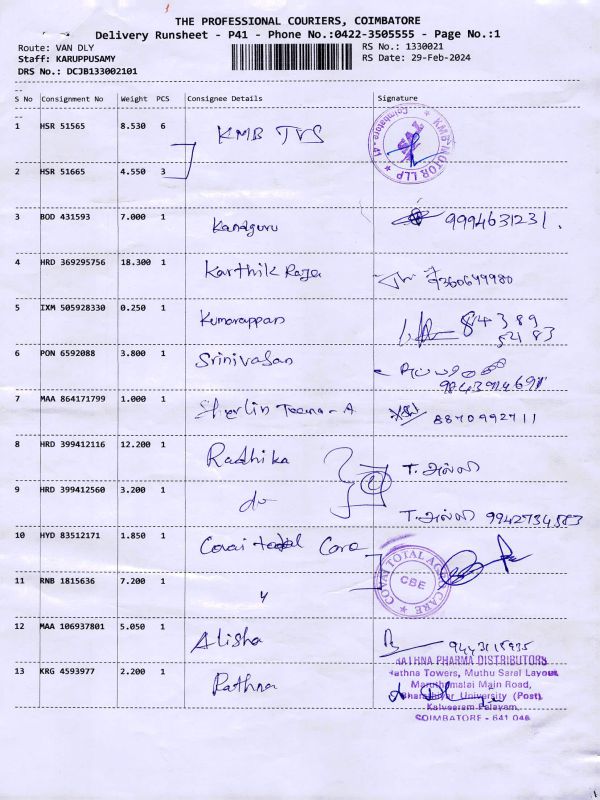 THE PROFESSIONAL COURIERS, COIMBATORE
Delivery Runsheet - P41 - Phone No.:0422-3505555 - Page No.:1
Route: VAN DLY RS No.: 1330021
Staff: KARUPPUSAMY RS Date: 29-Feb-2024
DRS No.: DCJB133002101
S No Consignment No Weight PCS Consignee Details Signature
1 HSR 51565 8.530 6 KMB TVS KMB MOTOR LLP * Coimbatore - 41 *
2 HSR 51665 4.550 3
3 BOD 431593 7.000 1 Kandguru 9994631231.
4 HRD 369295756 18.300 1 Karthik Raja 9360649980
5 IXM 505928330 0.250 1 Kumarappan 84389
52183
6 PON 6592088 3.800 1 Srinivasan
7 MAA 864171799 1.000 1 Sherlin Teena - A 8870992711
8 HRD 399412116 12.200 1 Radhika T. அல்லி
9 HRD 399412560 3.200 1 do T. அல்லி 9942734583
10 HYD 83512171 1.850 1 Covai total Care COVAI TOTAL AGRI CARE CBE
11 RNB 1815636 7.200 1 "
12 MAA 106937801 5.050 1 Alisha
13 KRG 4593977 2.200 1 Rathna
RATHNA PHARMA DISTRIBUTORS
Rathna Towers, Muthu Saral Layout
Maruthamalai Main Road,
Bharathiyar University (Post),
Kalveeram Palayam,
COIMBATORE - 641 046